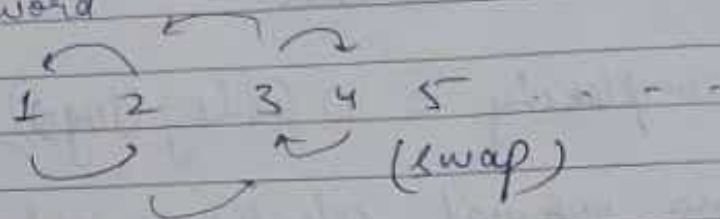 word
1 2 3 4 5 - - - -
(swap)